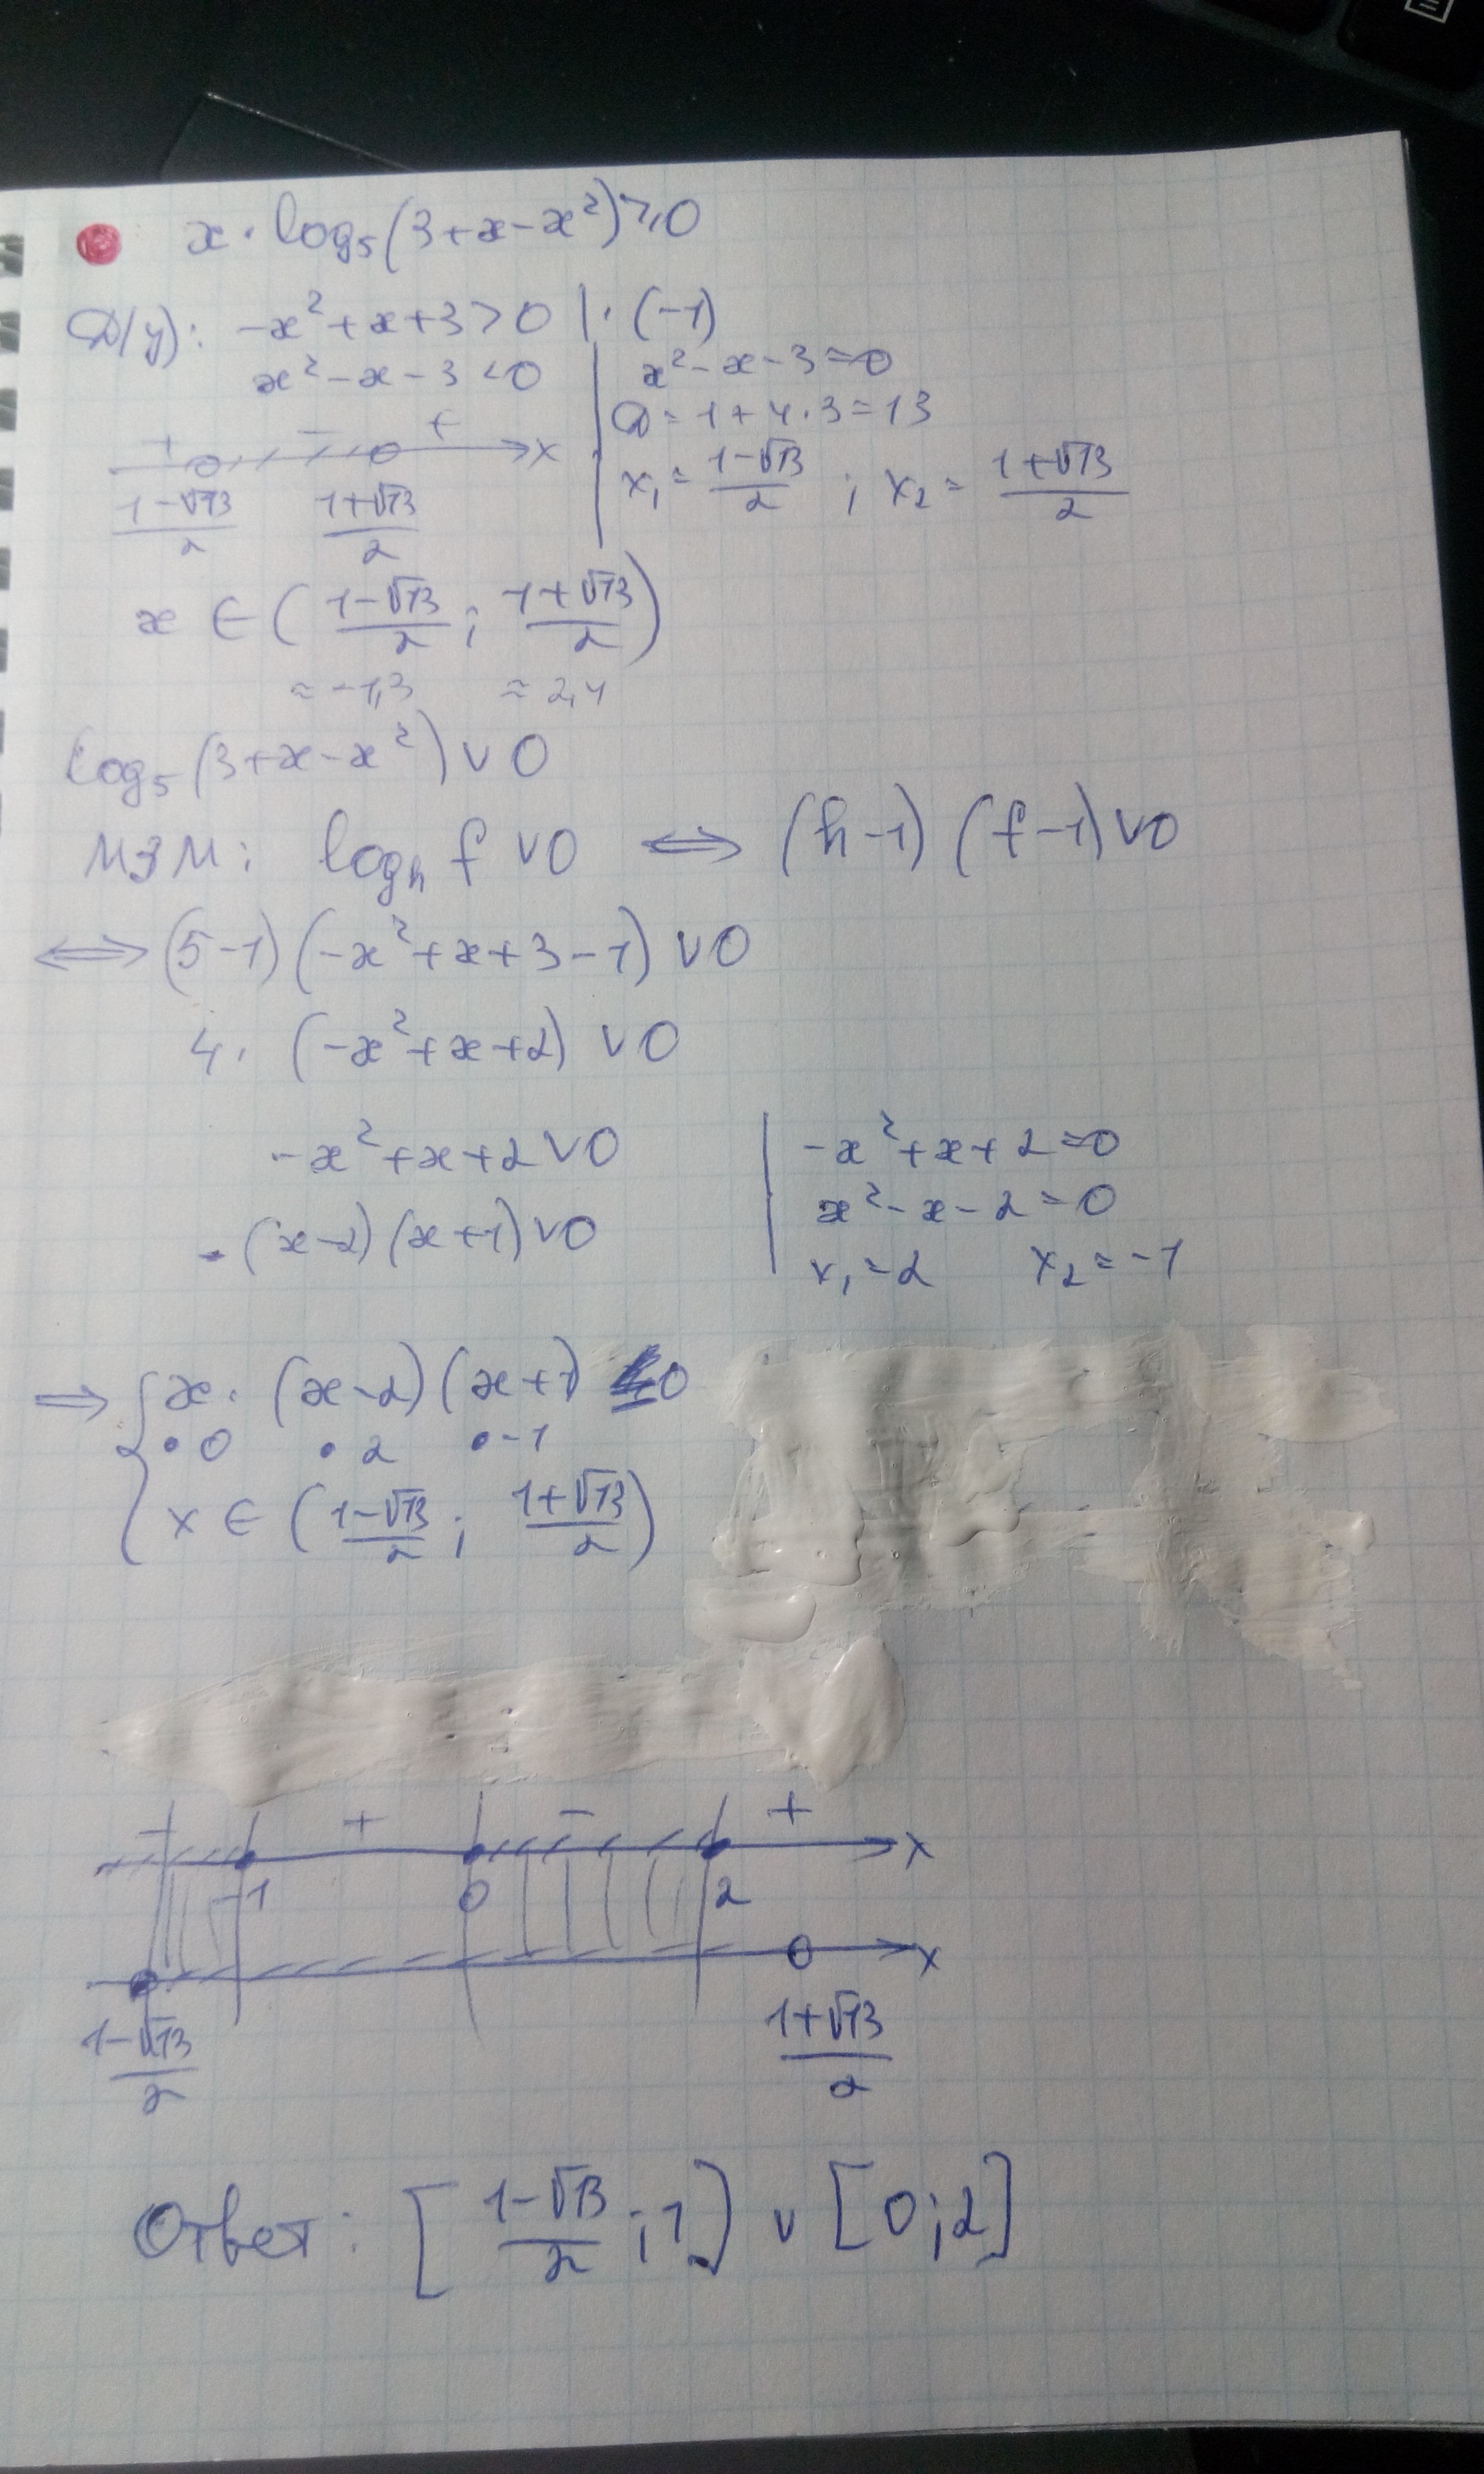 x · log₅(3+x-x²) ⩾ 0
D(y): -x²+x+3>0 | · (-1)
x²-x-3<0
x²-x-3=0
D=1+4·3=13
x₁= (1-√13)/2 ; x₂= (1+√13)/2
+ - + x
(1-√13)/2 (1+√13)/2
x ∈ ( (1-√13)/2 ; (1+√13)/2 )
≈ -1,3 ≈ 2,4
log₅(3+x-x²) ∨ 0
МЗМ: logₕ f ∨ 0 ⟺ (h-1)(f-1) ∨ 0
⟺ (5-1)(-x²+x+3-1) ∨ 0
4 · (-x²+x+2) ∨ 0
-x²+x+2 ∨ 0
-(x-2)(x+1) ∨ 0
-x²+x+2=0
x²-x-2=0
x₁=2 x₂=-1
⟹ { x · (x-2)(x+1) ≤ 0
• 0 • 2 • -1
x ∈ ( (1-√13)/2 ; (1+√13)/2 )
- + - + x
-1 0 2
x
(1-√13)/2 (1+√13)/2
Ответ: [ (1-√13)/2 ; 1 ] ∪ [0;2]